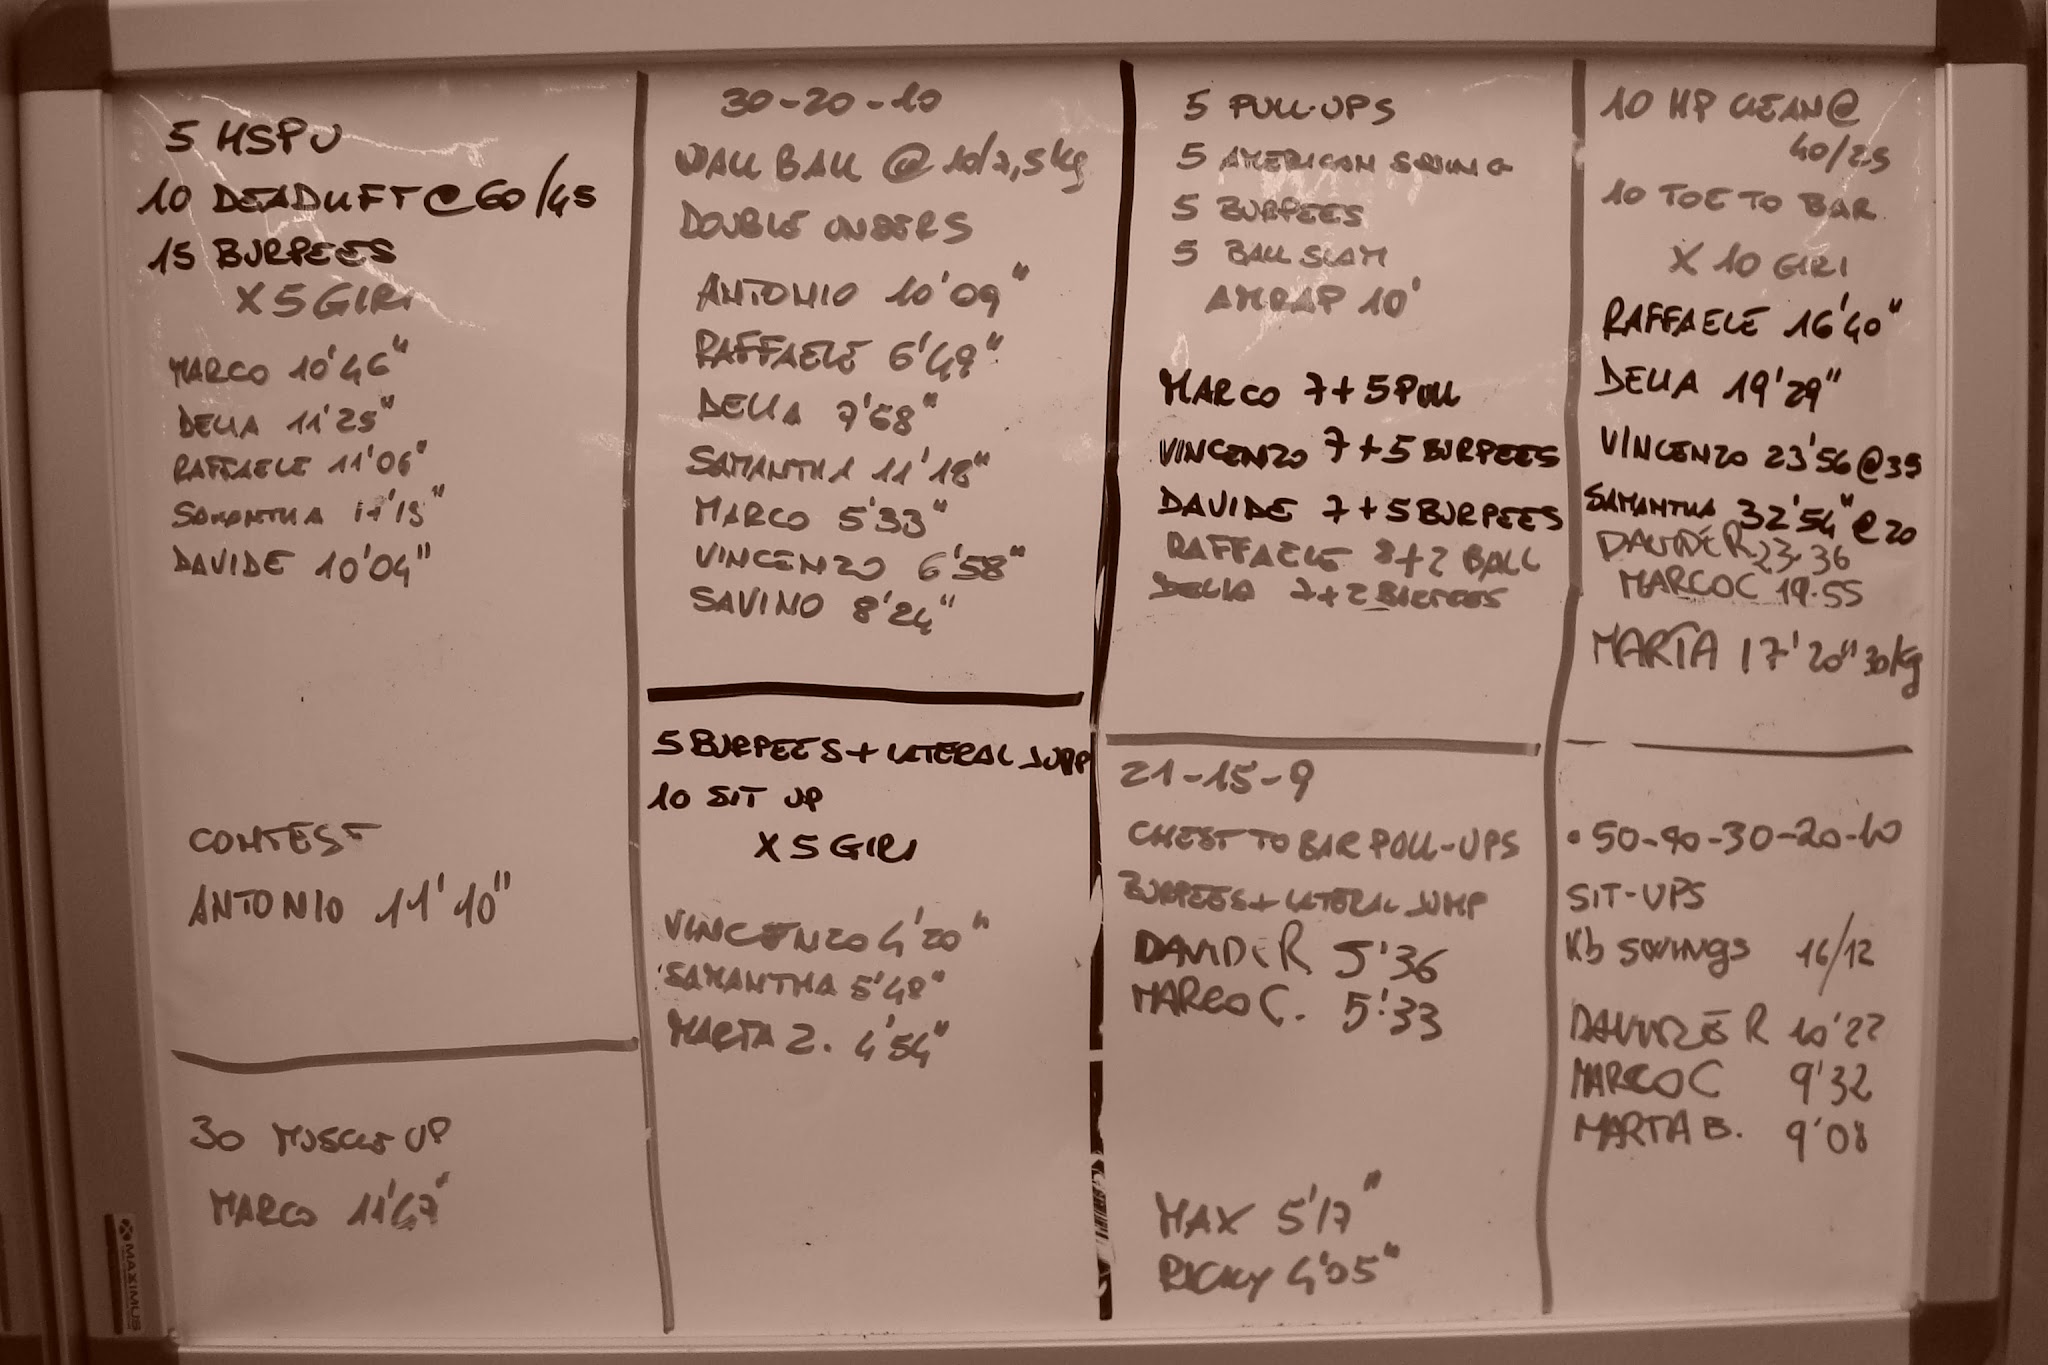 5 HSPU
10 DEADLIFT @ 60/45
15 BURPEES
X 5 GIRI
MARCO 10'46"
DELIA 11'25"
RAFFAELE 11'06"
SAMANTHA 11'15"
DAVIDE 10'04"
CONTEST
ANTONIO 11'10"
30 MUSCLE UP
MARCO 11'47"
30-20-10
WALL BALL @ 10/7,5kg
DOUBLE UNDERS
ANTONIO 10'09"
RAFFAELE 6'49"
DELIA 7'58"
SAMANTHA 11'18"
MARCO 5'33"
VINCENZO 6'58"
SAVINO 8'24"
5 BURPEES + LATERAL JUMP
10 SIT UP
X 5 GIRI
VINCENZO 4'20"
SAMANTHA 5'48"
MARTA Z. 4'54"
5 PULL-UPS
5 AMERICAN SWING
5 BURPEES
5 BALL SLAM
AMRAP 10'
MARCO 7+5 PULL
VINCENZO 7+5 BURPEES
DAVIDE 7+5 BURPEES
RAFFAELE 8+2 BALL
DELIA 7+2 BURPEES
21-15-9
CHEST TO BAR PULL-UPS
BURPEES + LATERAL JUMP
DAVIDE R 5'36
MARCO C. 5'33
MAX 5'17"
RICKY 4'05"
10 HP CLEAN @
40/25
10 TOE TO BAR
X 10 GIRI
RAFFAELE 16'40"
DELIA 19'29"
VINCENZO 23'56 @35
SAMANTHA 32'54" @20
DAVIDE R 23.36
MARCO C 19.55
MARTA 17'20" 30kg
• 50-40-30-20-10
SIT-UPS
Kb SWINGS 16/12
DAVIDE R 10'22
MARCO C 9'32
MARTA B. 9'08
MAXIMUS